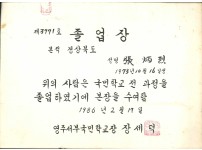 제3991호
졸업장
본적 경상북도
성명 張炳烈
1973년 10월 16일생
위의 사람은 국민학교 전 과정을
졸업하였기에 본장을 수여함
1986년 2월 19일
영주서부국민학교장 장세덕